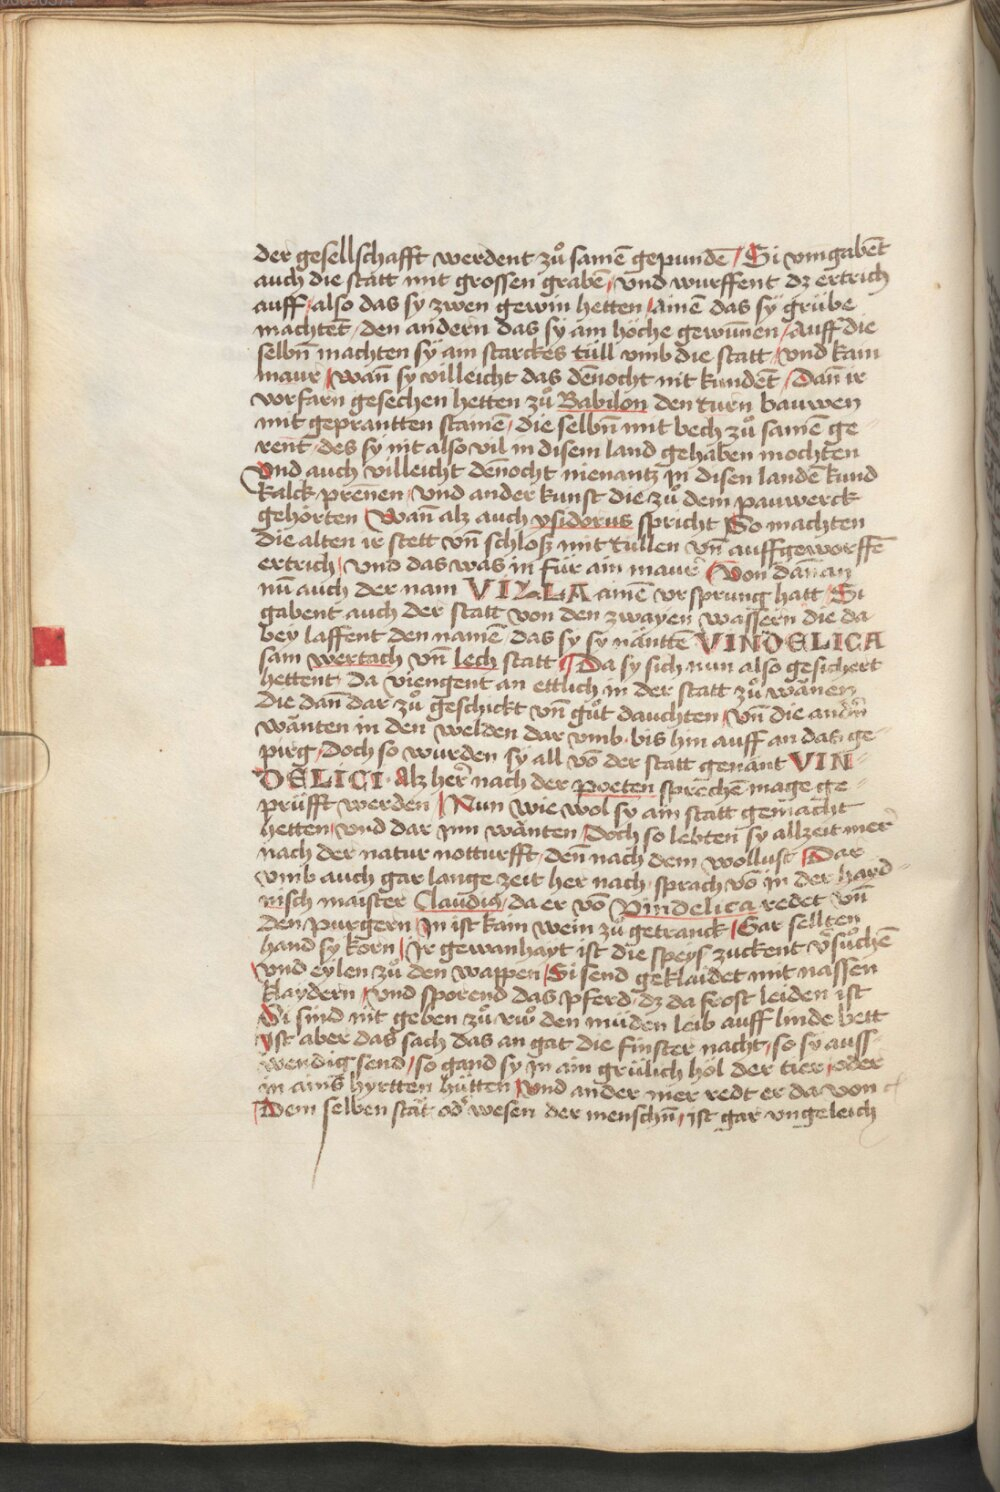 der gesellschafft werdent zuͦ samē gepundē / Si vmgabēt
auch die statt mit grossen grabē / vnd wurffent dz ertrich
auff / also das sy zwen gewin hetten / ainē das sÿ grübe
machtēt / den andern das sy ain höche gewūnen / Auff die
selbn̄ machten sÿ ain starckes tüll vmb die statt / vnd kain
maur / wan̄ sy villeicht das dēnocht nit kundēt / Dan̄ ir
vorfarn gesechen hetten zuͦ Babilon den turn bauwen
mit geprantten stainē / die selbn̄ mit bech zuͦ samē ge-
rent / des sy nit also vil in disem land gehaben mochten
Vnd auch villeicht dēnocht nienantz jn disen landē kund
kalck prēnen / vnd ander kunst die zuͦ dem pauwerck
gehörten / Wan̄ alz auch ysidorus spricht / So machten
die alten ir stett vn̄ schloß mit tüllen vn̄ auffgeworffē
ertrich / vnd das was in für ain maur / Von dan̄an
nū auch der nam VILLA ainē vrsprung hatt / Si
gabent auch der statt von den zwayen wassern die da
bey lauffent den namē das sy sy nāntte VINDELICA
sam wertach vn̄ lech statt / Da sy sich nun also gesichert
hettent / da viengent an ettlich in der statt zuͦ wānen
die dan̄ dar zuͦ geschickt vn̄ guͦt dauchten / vn̄ die andn̄
wānten in den welden dar vmb bis hin auff an das ge-
pirg / Doch so wurden sy all vō der statt genant VIN-
DELICI · Alz her nach der poeten sprechē mage ge-
prüfft werden / Nun wie wol sy ain statt gemacht
hetten / vnd dar jnn wānten / Doch so lebten sy allzeit mer
nach der natur notturfft / den̄ nach dem wollust / Dar
vmb auch gar lange zeit her nach / sprach vō in der hayd-
nisch maister Claudiꝯ / da er vō Vindelica redet vn̄
den purgern / Jn ist kain wein zuͦ getranck / Gar sellten
hand sy korn / Jr gewanhayt ist die speys zuckent v̄suͦchē
vnd eylen zuͦ den wappen / Si send geklaidet mit nassen
klaydern / vnd sporend das pferd / dz da frost leiden ist
Si sind nit geben zuͦ ruͦ den müden leib auff linde bett
yst aber das sach das an gat die finster nacht / so sy auss-
wendig send / so gand sy jn ain grülich hol der tier / oder
in ains hyrtten hütten / vnd ander mer redt er da von
Dem selben stat od' wesen der menschn̄ / ist gar vngeleich